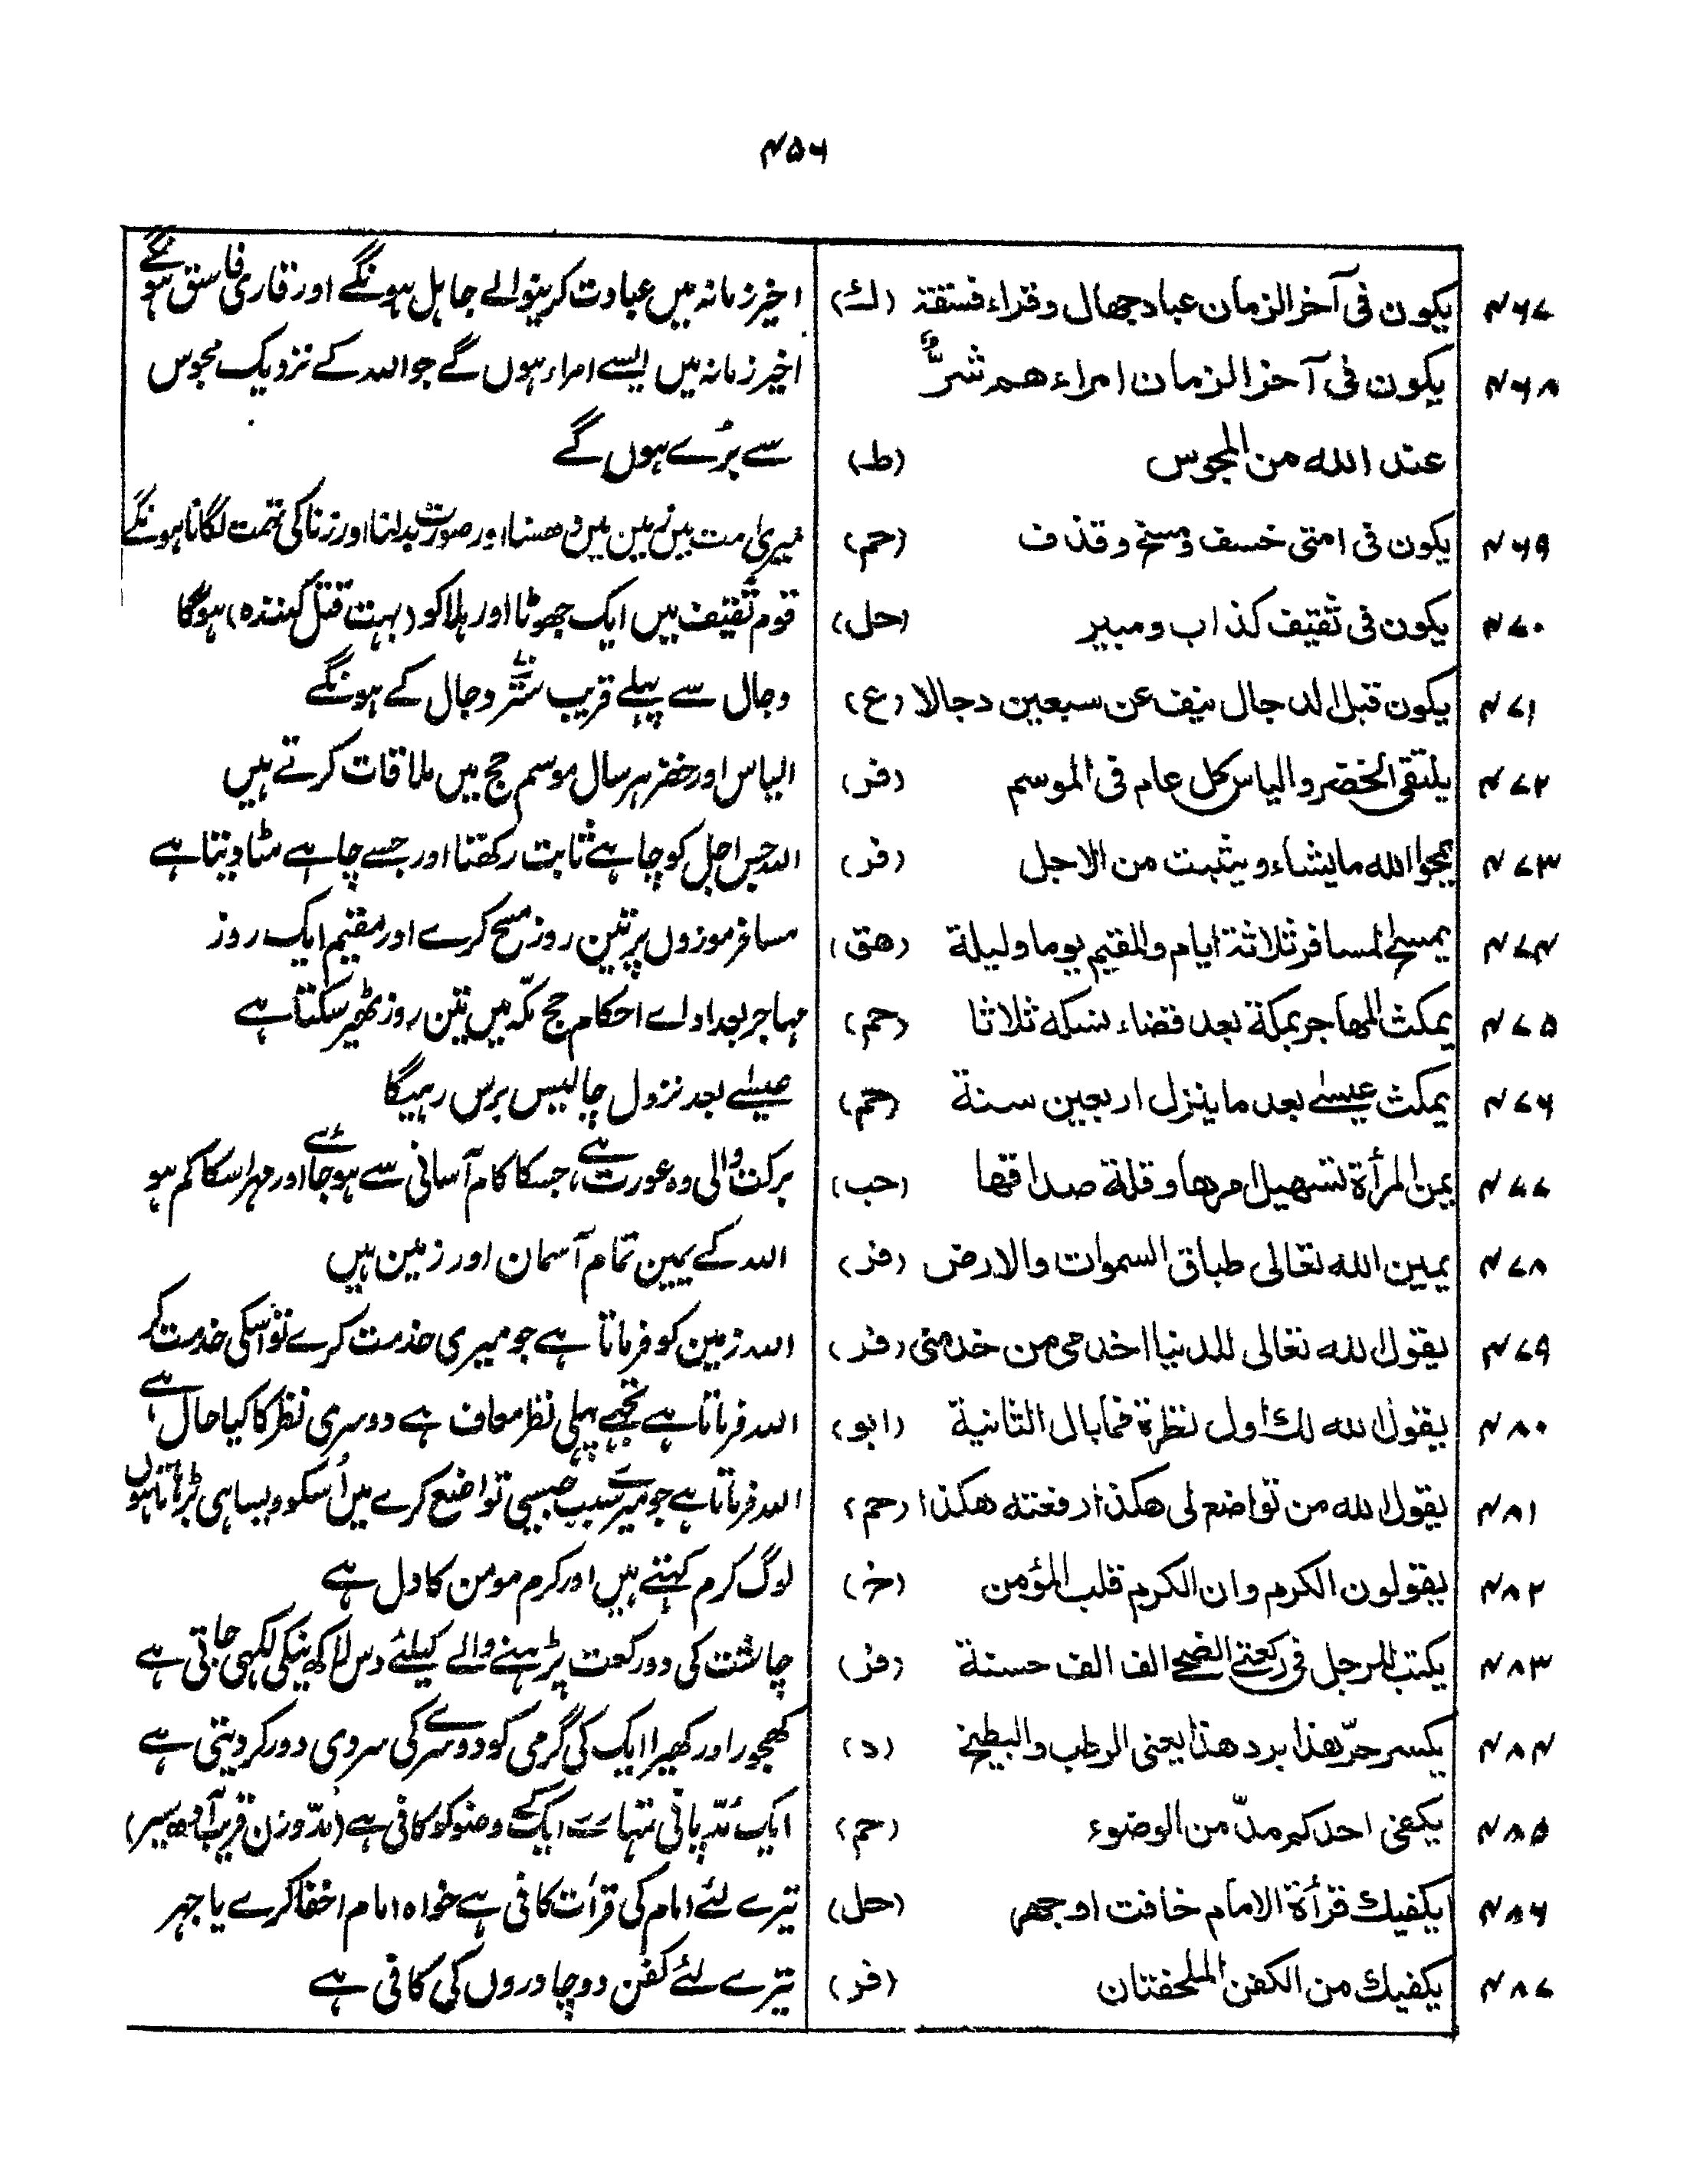 ۴۵۶
۴۶۷ یکون فی آخر الزمان عباد جهال وقراء فسقة (ك) اخیر زمانہ میں عبادت کرینوالے جاہل ہونگے اور قاری فاسق ہونگے
۴۶۸ یکون فی آخر الزمان امراء هم شرٌّ اخیر زمانہ میں ایسے امراء ہوں گے جو اللہ کے نزدیک مجوس
عند الله من المجوس (ط) سے بُرے ہوں گے
۴۶۹ یکون فی امتی خسف ومسخ وقذف (حم) میری امت میں زمین میں دھسنا اور صورت بدلنا اور زنا کی تہمت لگانا ہونگے
۴۷۰ یکون فی ثقیف کذاب ومبیر (حل) قوم ثقیف میں ایک جھوٹا اور ہلاکو (بہت قتل کنندہ) ہوگا
۴۷۱ یکون قبل الدجال نیف عن سبعین دجالا (ع) دجال سے پہلے قریب ستّر دجال کے ہونگے
۴۷۲ یلتقی الخضر والیاس کل عام فی الموسم (فر) الیاس اور خضر ہر سال موسم حج میں ملاقات کرتے ہیں
۴۷۳ یمحوا الله مایشاء ویثبت من الاجل (فر) اللہ جس اجل کو چاہے ثابت رکھتا اور جسے چاہے مٹا دیتا ہے
۴۷۴ یمسح المسافر ثلاثة ایام والمقیم یوما ولیلة (هق) مسافر موزوں پر تین روز مسح کرے اور مقیم ایک روز
۴۷۵ یمکث المهاجر بمکة بعد قضاء نسکه ثلاثا (حم) مہاجر بعد اداے احکام حج مکّہ میں تین روز ٹھیر سکتا ہے
۴۷۶ یمکث عیسٰے بعد ما ینزل اربعین سنة (حم) عیسٰے بعد نزول چالیس برس رہیگا
۴۷۷ یمن المرأة تسهیل امرها وقلة صداقها (حب) برکت والی وہ عورت ہے، جسکا کام آسانی سے ہو جائے اور مہر اسکا کم ہو
۴۷۸ یمین الله تعالی طباق السموات والارض (فر) اللہ کے یمین تمام آسمان اور زمین ہیں
۴۷۹ یقول الله تعالی للدنیا اخدمی من خدمنی (فر) اللہ زمین کو فرماتا ہے جو میری خدمت کرے تو اُسکی خدمت کر
۴۸۰ یقول الله لك اول نظرة فمابال الثانیة (ابو) اللہ فرماتا ہے تجھے پہلی نظر معاف ہے دوسری نظر کا کیا حال ہے
۴۸۱ یقول الله من تواضع لی هکذا رفعته هکذا (حم) اللہ فرماتا ہے جو میرے سبب جیسی تواضع کرے میں اُسکو ویسا ہی بڑھاتا ہوں
۴۸۲ یقولون الکرم وان الکرم قلب المؤمن (خ) لوگ کرم کہتے ہیں اور کرم مومن کا دل ہے
۴۸۳ یکتب للرجل فی رکعتے الضحے الف الف حسنة (فر) چاشت کی دو رکعت پڑہنے والے کیلئے دس لاکھ نیکی لکھی جاتی ہے
۴۸۴ یکسر حرّ هذا برد هذا یعنی الرطب والبطیخ (د) کھجور اور کھیرا ایک کی گرمی کو دوسرے کی سردی دور کر دیتی ہے
۴۸۵ یکفی احدکم مدّ من الوضوء (حم) ایک مُدّ پانی تمہارے ایک کے وضو کو کافی ہے (مُدّ وزن قریب آدھ سیر)
۴۸۶ یکفیك قرأة الامام خافت اوجهر (حل) تیرے لئے امام کی قرأت کافی ہے خواہ امام اخفا کرے یا جہر
۴۸۷ یکفیك من الکفن الملحفتان (فر) تیرے لئے کفن دو چادروں کی کافی ہے